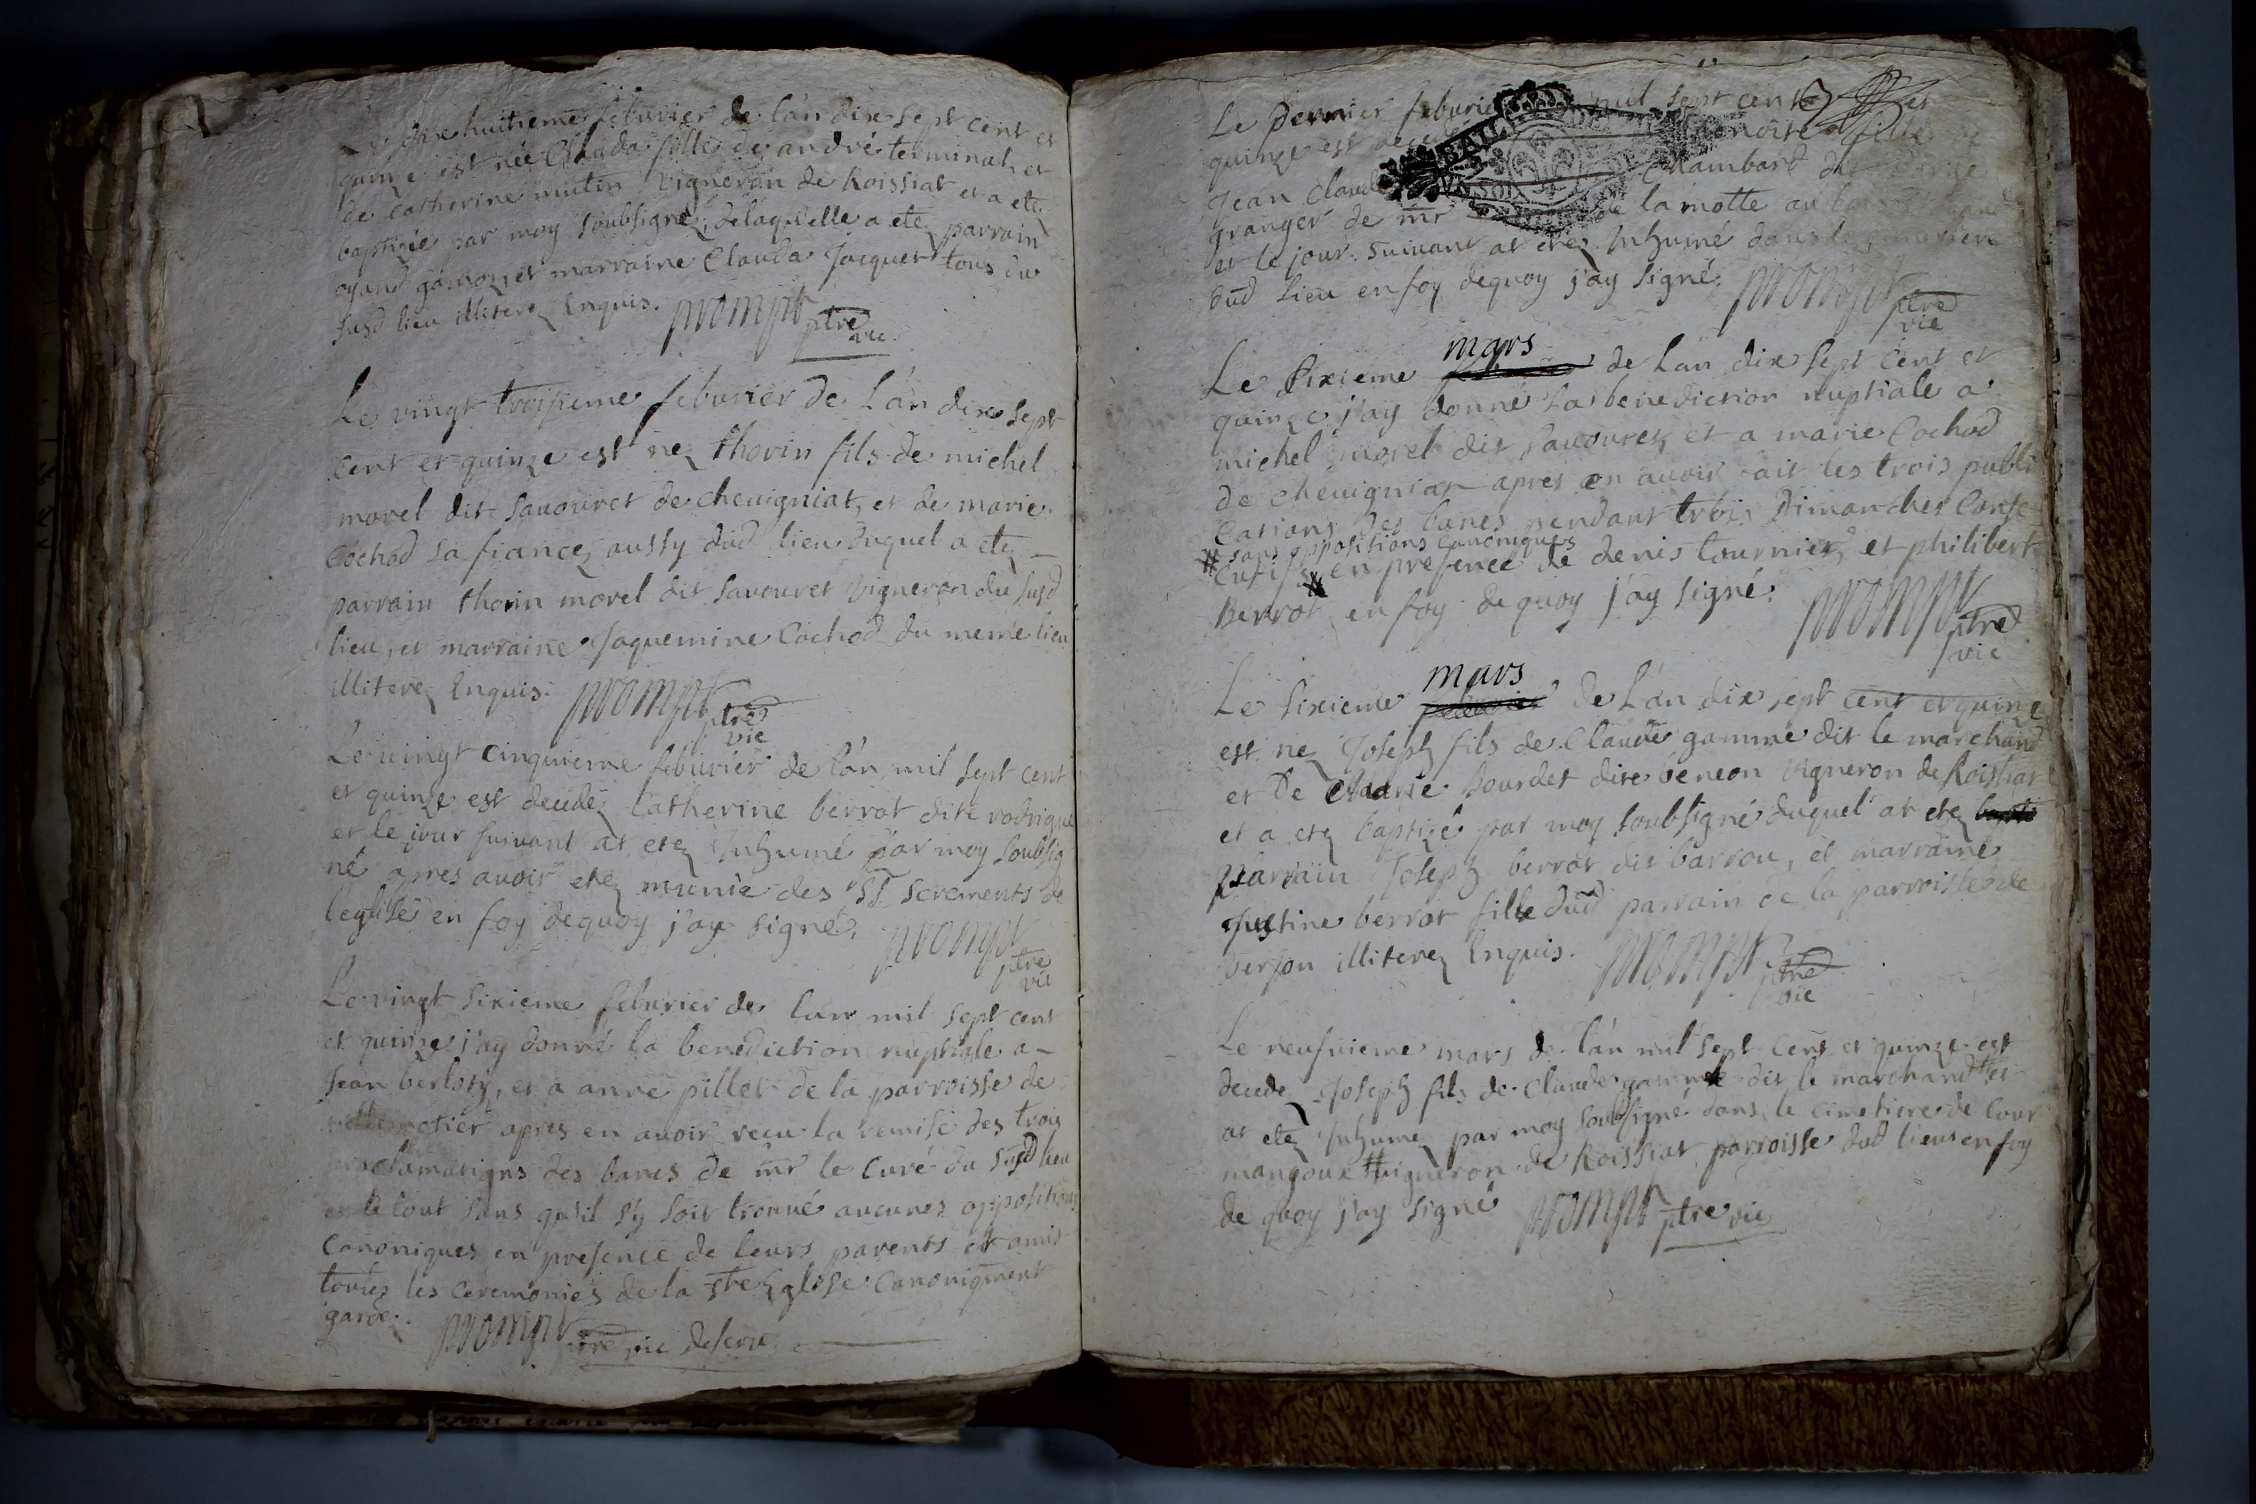 dixe huitieme feburier de l'an dix sept cent et
quinze est née Clauda fille de andré terminal, et
de catherine mutin vigneron de Roissiat et a ete
baptizée par moy soubsigné, delaquelle a etez parrain
oyand gamoz, et marraine Clauda Jacquet tous du
susd lieu illiterez Enquis. prompt ptre vic.
Le vingt troisieme feburier de L'an dix sept
cent et quinze est nez thorin fils de michel
morel dit Savouret de cheuigniat, et de marie
Cochod sa fiancez aussy dud lieu duquel a etez
parrain thorin morel dit Savouret vigneron du susd
lieu, et marraine Jaquemine Cochod du meme lieu
illiterez Enquis. prompt ptre vic
Le vingt cinquieme feburier de l'an mil sept cent
et quinze est decedez Catherine berrot dite rodrigue
et le jour suivant at etez Inhumé par moy soubsig
né apres avoir etez munie des St Screments de
leglise en foy dequoy j'ay signé. prompt ptre vic
Le vingt sixieme feburier de l'an mil sept cent
et quinze j'ay donné la benediction nuptiale a
Jean berloty, et a anne pillet de la parroisse de
apres en avoir recu la remise des trois
proclamations des bancs de mr le Curé du susd lieu
et le tout sans qu'il sy soit trouvé aucunes oppositions
Canoniques en presence de leurs parents et amis
toutes les ceremonies de la Ste Eglise Canoniqment
gardez. prompt ptre vic deserv.
Le dernier feburier mil sept cent et
quinze est fille de
Jean Claude Chambard
granger de mr de la motte au
et le jour suivant at etez Inhumé dans le cimetiere
dud lieu en foy dequoy j'ay signé. prompt ptre vic
mars
Le sixieme de Lan dix sept cent et
quinze j'ay donné la benediction nuptiale a
michel morel dit savouret, et a marie Cochod
de cheuigniat apres en avoir fait les trois publi
cations des bancs pendant trois Dimanches Conse
# sans oppositions canoniques
cutifs # en presence de denis tournier, et philibert
Berrot en foy dequoy j'ay signé. prompt ptre vic
mars
Le sixieme feburier de L'an dix sept cent et quinze
est nez Joseph fils de Claude gamme dit le marchand
et De Claudine bourdet dite beneon vigneron de Roissiat
et a etez baptizé par moy soubsigné duquel at etez bapti
parrain Joseph berrot dit barrou, et marraine
Justine berrot fille dud parrain de la parroisse de
verjon illiterez Enquis. prompt ptre vic
Le neufvieme mars de l'an mil sept cent et quinze est
decedez Joseph fils de Claude gamme dit le marchand # et
at etez Inhumez par moy soubsigné dans le cimetiere de Cour
mangoux # vigneron de Roissiat parroisse dud lieu en foy
de quoy j'ay signé prompt ptre vic